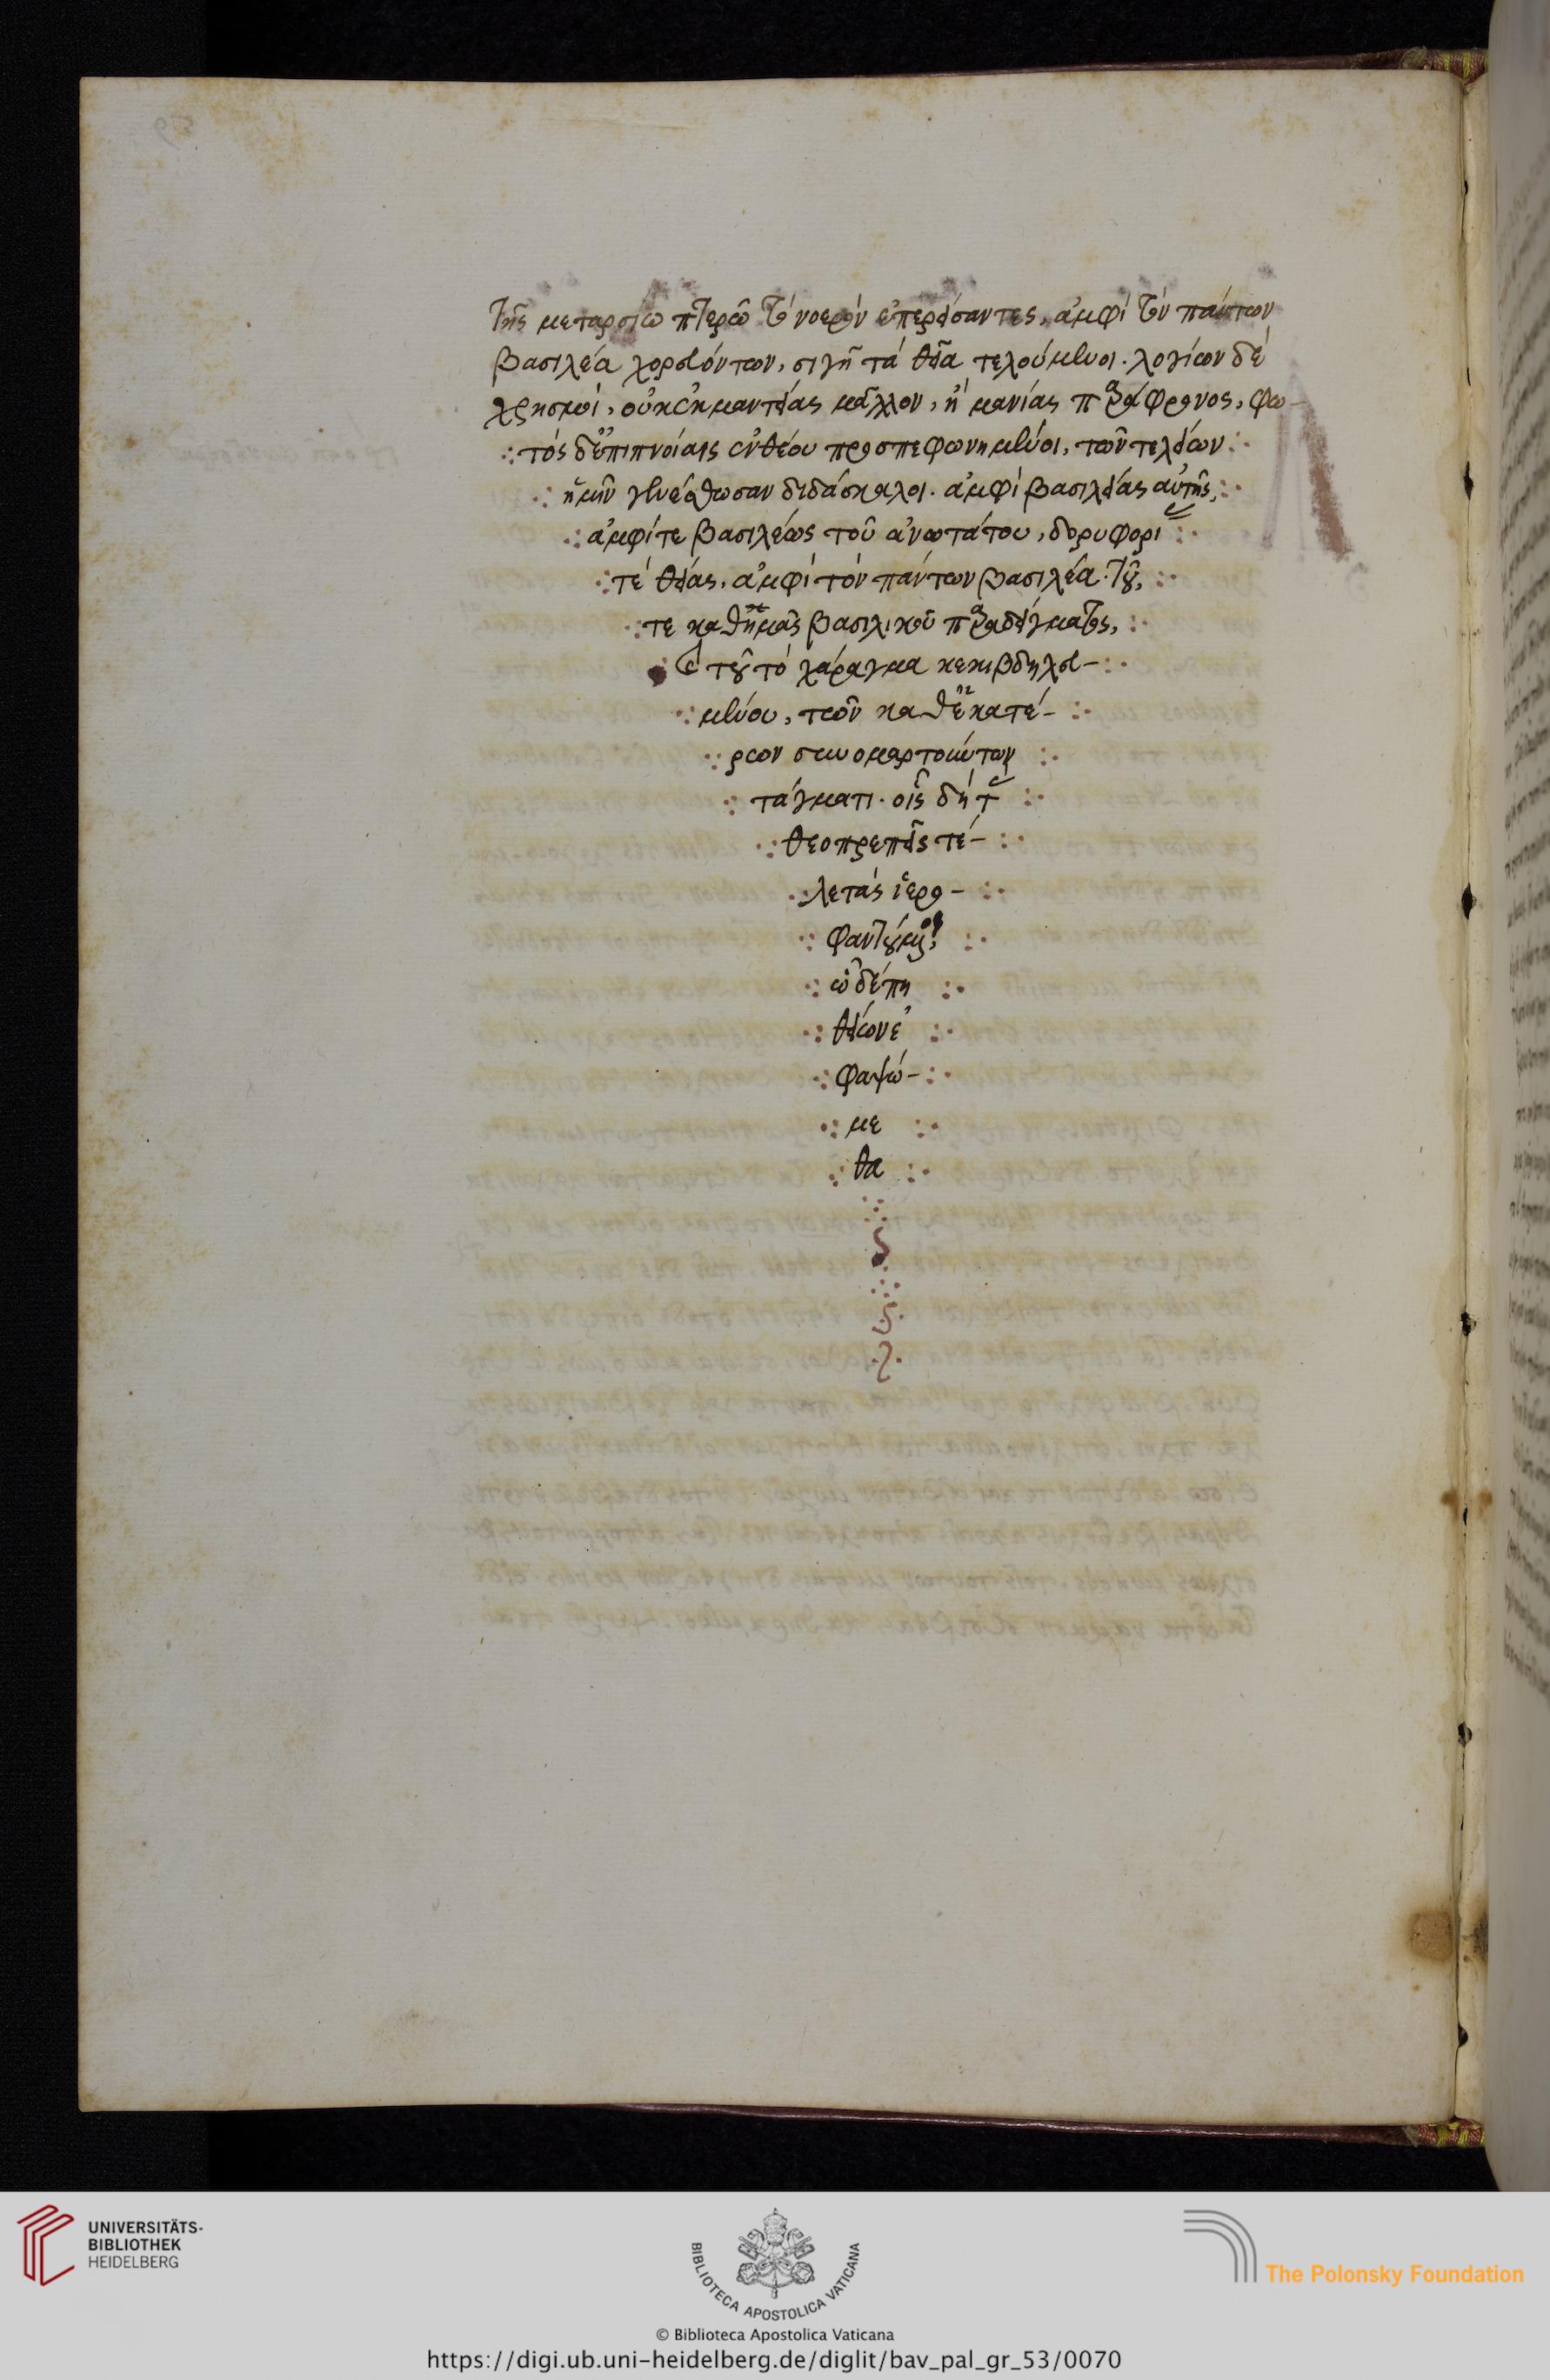 τῆς μεταρσίω πτερῶ τὸ νοερὸν ἐπερείσαντες, ἀμφὶ τὸν πάντων
βασιλέα χορευόντων, σιγῆ τὰ θεῖα τελούμενοι. λογίων δὲ
χρησμοὶ, οὐκ ἐκ μαντείας μᾶλλον, ἢ μανίας παράφρονος, φω-
τὸς δ' ἐπιπνοίαις ἐνθέου προσπεφωνημένοι, τῶν τελείων
ἡμῖν γενέσθωσαν διδάσκαλοι. ἀμφὶ βασιλείας αὐτῆς,
ἀμφί τε βασιλέως τοῦ ἀνωτάτου, δορυφορι
τὲ θείας, ἀμφὶ τὸν πάντων βασιλέα. τοῦ,
τε καθ' ἡμᾶς βασιλικοῦ παραδείγματος,
τοῦ τὸ χάραγμα κεκιβδηλευ-
μένου, τῶν καθ' ἑκατέ-
ρων συνομαρτούντων
τάγματι. οἷς δὴ
θεοπρεπεῖς τε-
λετὰς ἱερο-
φαντούμενοι,
ὧδέ πη
θείων ἐ
φαψώ-
με
θα
UNIVERSITÄTS-
BIBLIOTHEK
HEIDELBERG
BIBLIOTECA APOSTOLICA VATICANA
The Polonsky Foundation
© Biblioteca Apostolica Vaticana
https://digi.ub.uni-heidelberg.de/diglit/bav_pal_gr_53/0070